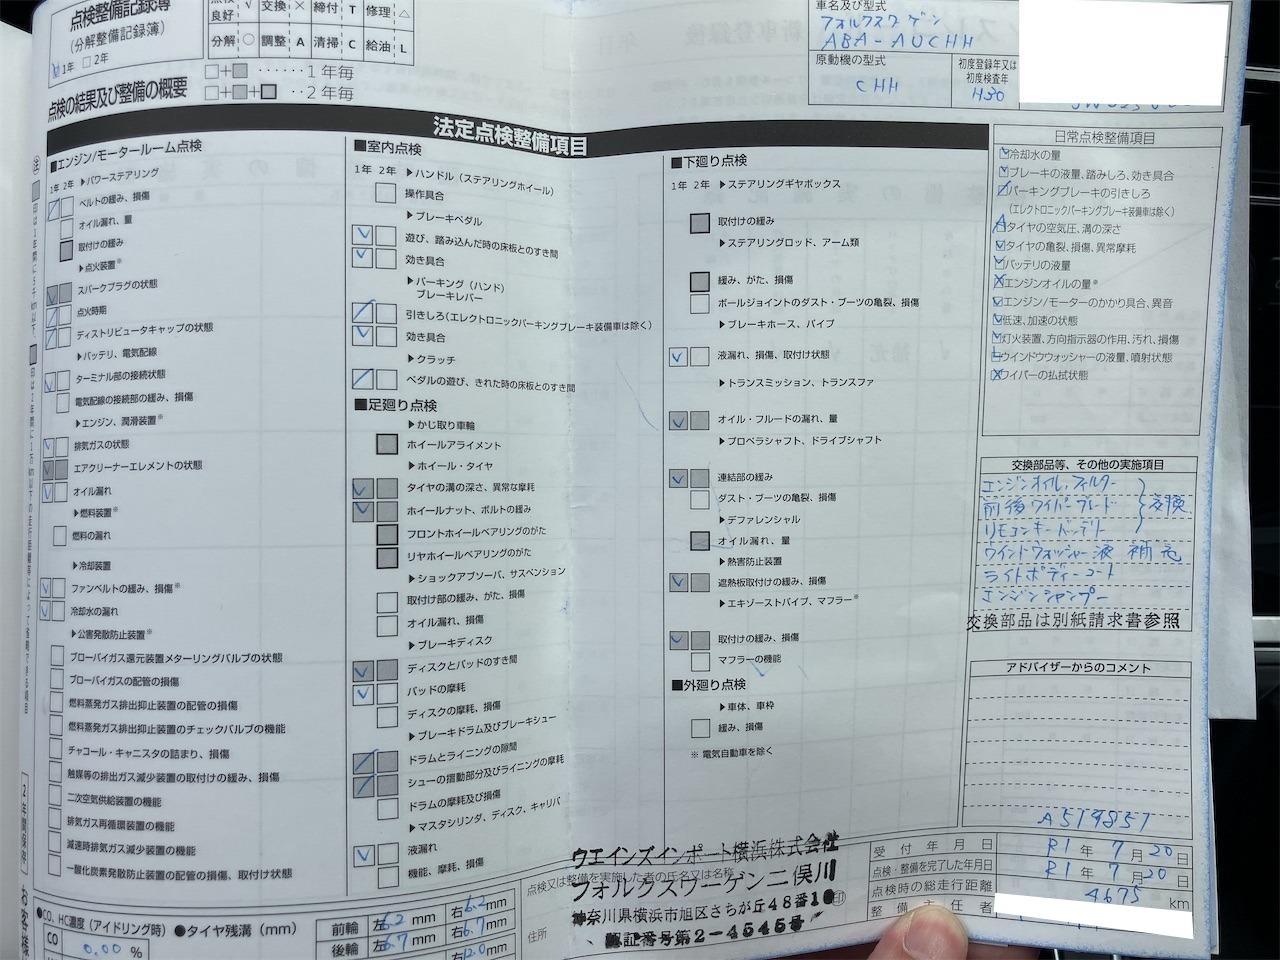 点検整備記録簿
(分解整備記録簿)
1年 2年
良好 √ 交換 × 締付 T 修理 △
分解 ○ 調整 A 清掃 C 給油 L
□+□ ······1年毎
□+□+□ ··2年毎
点検の結果及び整備の概要
車名及び型式
フォルクスワーゲン
ABA-AUCHH
原動機の型式
CHH
初度登録年又は
初度検査年
H30
法定点検整備項目
■エンジン/モータールーム点検
1年 2年 ▶パワーステアリング
ベルトの緩み、損傷
オイル漏れ、量
取付けの緩み
▶点火装置※
スパークプラグの状態
点火時期
ディストリビュータキャップの状態
▶バッテリ、電気配線
ターミナル部の接続状態
電気配線の接続部の緩み、損傷
▶エンジン、潤滑装置※
排気ガスの状態
エアクリーナーエレメントの状態
オイル漏れ
▶燃料装置※
燃料の漏れ
▶冷却装置
ファンベルトの緩み、損傷※
冷却水の漏れ
▶公害発散防止装置※
ブローバイガス還元装置メターリングバルブの状態
ブローバイガスの配管の損傷
燃料蒸発ガス排出抑止装置の配管の損傷
燃料蒸発ガス排出抑止装置のチェックバルブの機能
チャコール・キャニスタの詰まり、損傷
触媒等の排出ガス減少装置の取付けの緩み、損傷
二次空気供給装置の機能
排気ガス再循環装置の機能
減速時排気ガス減少装置の機能
一酸化炭素発散防止装置の配管の損傷、取付け状態
■室内点検
1年 2年 ▶ハンドル(ステアリングホイール)
操作具合
▶ブレーキペダル
遊び、踏み込んだ時の床板とのすき間
効き具合
▶パーキング(ハンド)
ブレーキレバー
引きしろ(エレクトロニックパーキングブレーキ装備車は除く)
効き具合
▶クラッチ
ペダルの遊び、きれた時の床板とのすき間
■足廻り点検
▶かじ取り車輪
ホイールアライメント
▶ホイール・タイヤ
タイヤの溝の深さ、異常な摩耗
ホイールナット、ボルトの緩み
フロントホイールベアリングのがた
リヤホイールベアリングのがた
▶ショックアブソーバ、サスペンション
取付け部の緩み、がた、損傷
オイル漏れ、損傷
▶ブレーキディスク
ディスクとパッドのすき間
パッドの摩耗
ディスクの摩耗、損傷
▶ブレーキドラム及びブレーキシュー
ドラムとライニングの隙間
シューの摺動部分及びライニングの摩耗
ドラムの摩耗及び損傷
▶マスタシリンダ、ディスク、キャリパ
液漏れ
機能、摩耗、損傷
■下廻り点検
1年 2年 ▶ステアリングギヤボックス
取付けの緩み
▶ステアリングロッド、アーム類
緩み、がた、損傷
ボールジョイントのダスト・ブーツの亀裂、損傷
▶ブレーキホース、パイプ
液漏れ、損傷、取付け状態
▶トランスミッション、トランスファ
オイル・フルードの漏れ、量
▶プロペラシャフト、ドライブシャフト
連結部の緩み
ダスト・ブーツの亀裂、損傷
▶デファレンシャル
オイル漏れ、量
▶熱害防止装置
遮熱板取付けの緩み、損傷
▶エキゾーストパイプ、マフラー※
取付けの緩み、損傷
マフラーの機能
■外廻り点検
▶車体、車枠
緩み、損傷
※ 電気自動車を除く
日常点検整備項目
冷却水の量
ブレーキの液量、踏みしろ、効き具合
パーキングブレーキの引きしろ
(エレクトロニックパーキングブレーキ装備車は除く)
タイヤの空気圧、溝の深さ
タイヤの亀裂、損傷、異常摩耗
バッテリの液量
エンジンオイルの量※
エンジン/モーターのかかり具合、異音
低速、加速の状態
灯火装置、方向指示器の作用、汚れ、損傷
ウインドウウォッシャーの液量、噴射状態
ワイパーの払拭状態
交換部品等、その他の実施項目
エンジンオイル、フィルター
前後ワイパーブレード 交換
リモコンキーバッテリー
ウインドウォッシャー液 補充
ライトボディーコート
エンジンシャンプー
交換部品は別紙請求書参照
アドバイザーからのコメント
A519851
受付年月日 R1年 7月20日
点検・整備を完了した年月日 R1年 7月20日
点検時の総走行距離 4675 km
整備主任者
点検又は整備を実施した者の氏名又は名称
住所
ウエインズインポート横浜株式会社
フォルクスワーゲン二俣川
神奈川県横浜市旭区さちが丘48番1 印
認証番号第2-4545号
●CO、HC濃度(アイドリング時) ●タイヤ残溝(mm)
CO 0.00 %
前輪 左6.2 mm 右6.2 mm
後輪 左6.7 mm 右6.7 mm
2年間保存